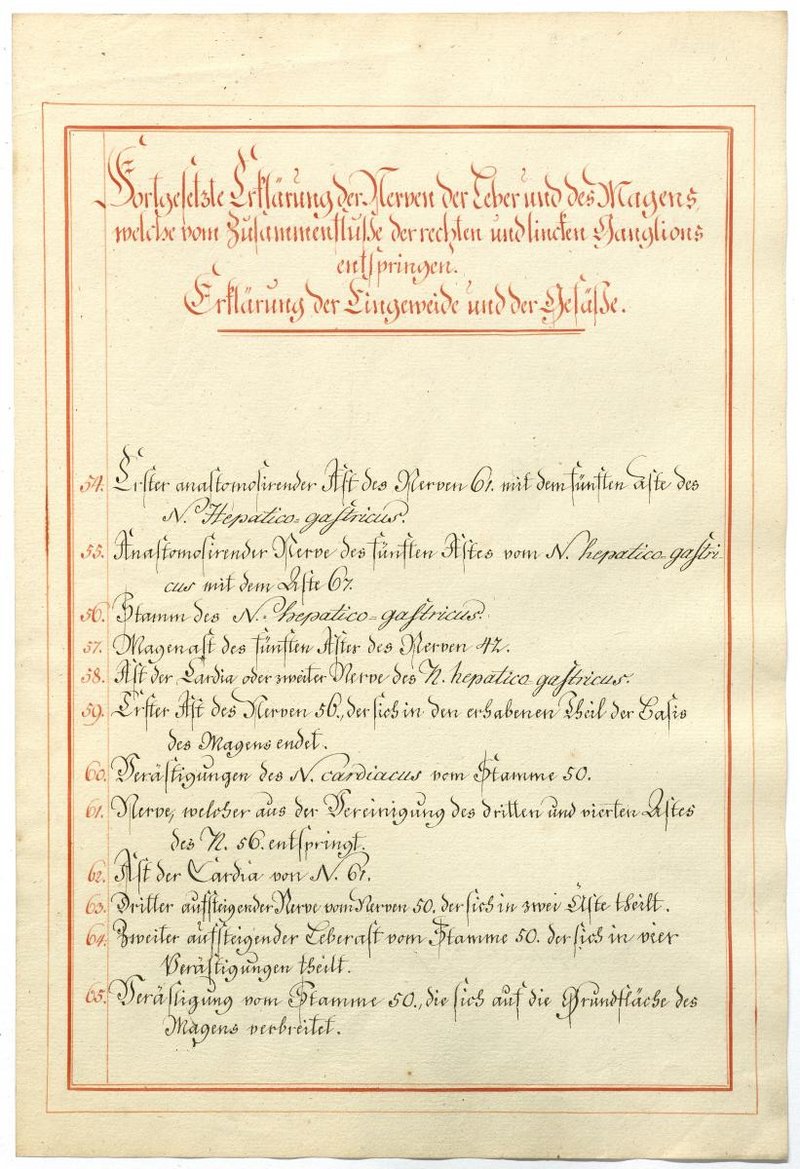 Fortgesetzte Erklärung der Nerven der Leber und des Magens,
welche vom Zusammenfluße der rechten und lincken Ganglions
entspringen.
Erklärung der Eingeweide und der Gefäße.
54. Erster anastomosirender Ast des Nerven 61. mit dem fünften Aste des
N. Hepatico=gastricus.
55. Anastomosirender Nerve des fünften Astes vom N. hepatico=gastri-
cus mit dem Aste 67.
56. Stamm des N. hepatico=gastricus.
57. Magenast des fünften Astes des Nerven 42.
58. Ast der Cardia oder zweiter Nerve des N. hepatico gastricus.
59. Erster Ast des Nerven 56., der sich in den erhabenen Theil der Basis
des Magens endet.
60. Verästigungen des N. cardiacus vom Stamme 50.
61. Nerve, welcher aus der Vereinigung des dritten und vierten Astes
des N. 56. entspringt.
62. Ast der Cardia von N. 61.
63. Dritter aufsteigender Nerve vom Nerven 50. der sich in zwei Äste theilt.
64. Zweiter aufsteigender Leberast vom Stamme 50. der sich in vier
Verästigungen theilt.
65. Verästigung vom Stamme 50., die sich auf die Grundfläche des
Magens verbreitet.